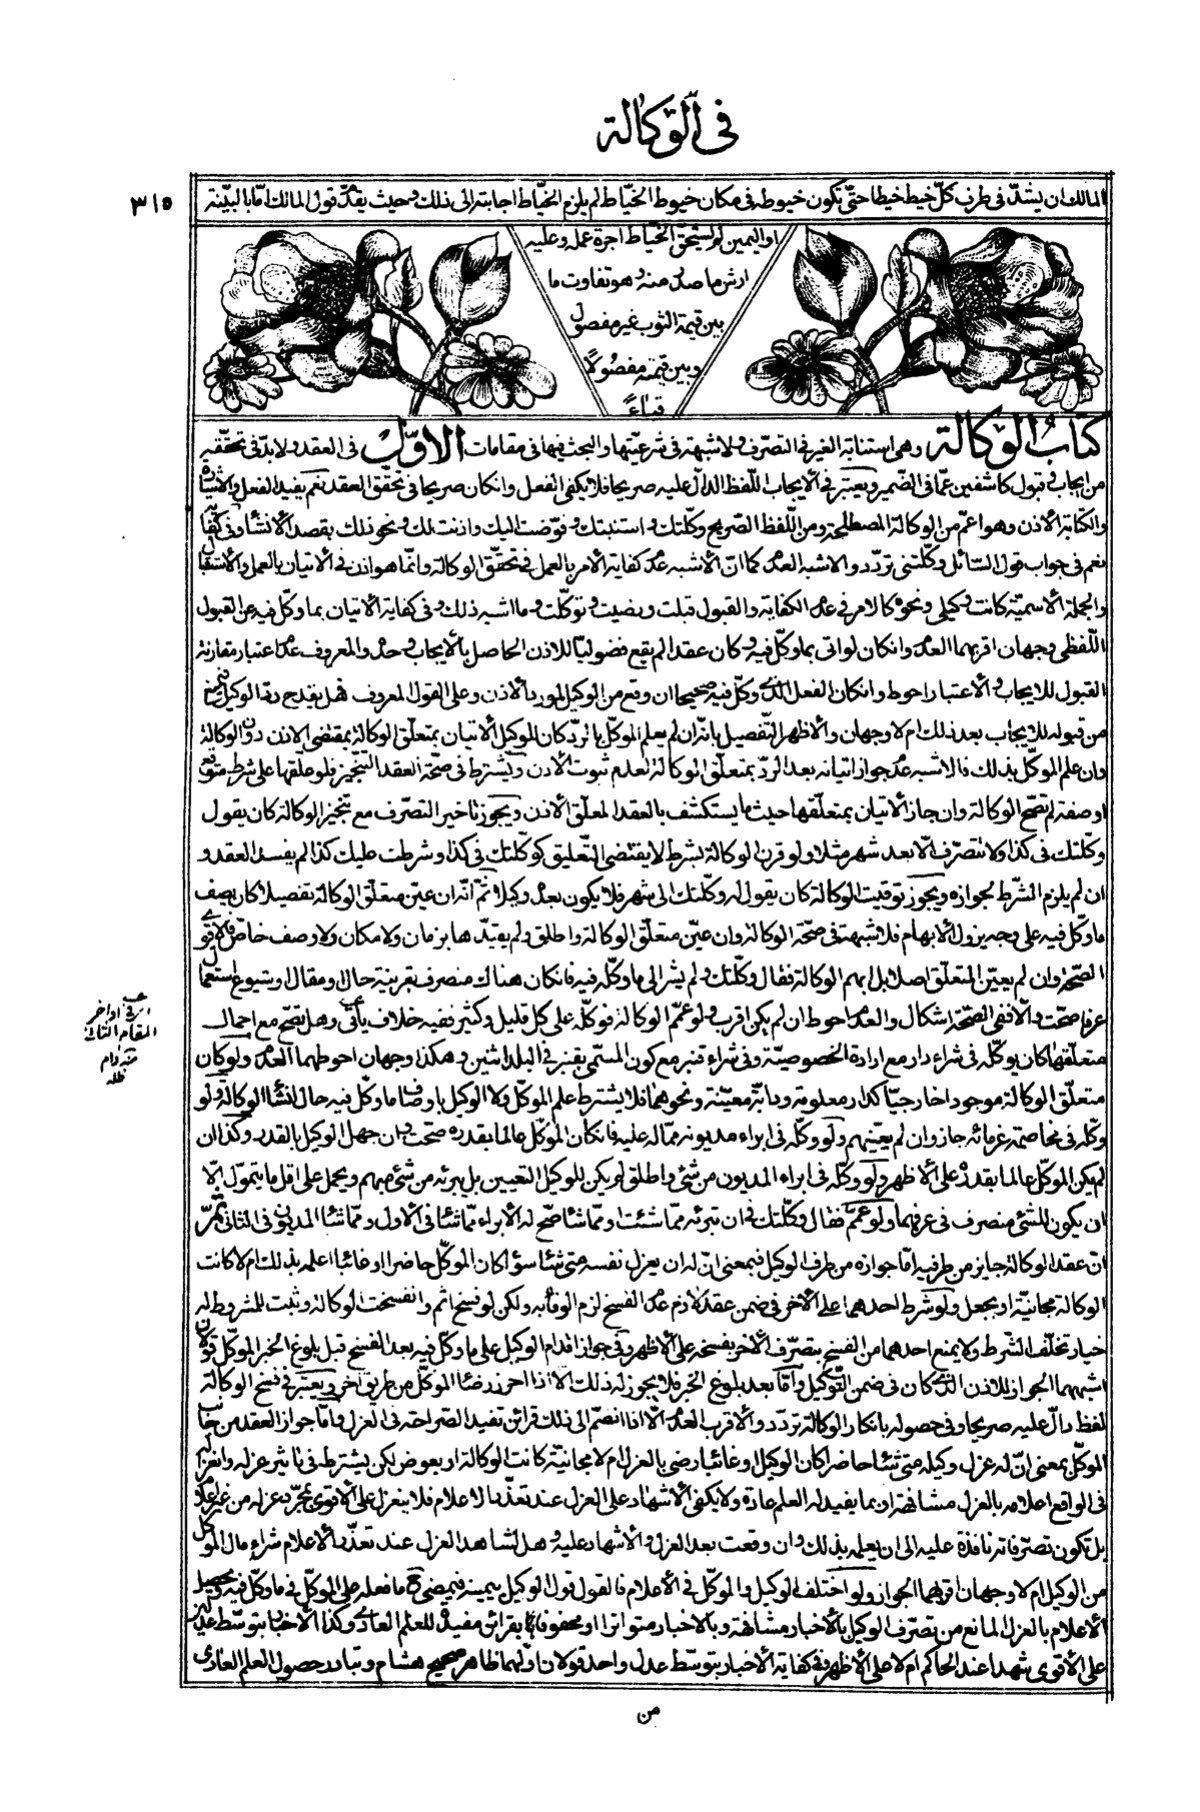 في الوكالة
٣١٥
المالك ان يشدّ في طرف كلّ خيط خيطا حتّى يكون خيوطه في مكان خيوط الخيّاط لم يلزم الخيّاط اجابته الى ذلك وحيث يقدّم قول المالك امّا بالبيّنة
او اليمين لم يستحق الخياط اجرة عمله وعليه
ارش ما حصل منه وهو تفاوت ما
بين قيمة الثوب غير مفصول
وبين قيمته مفصُولاً
قباءً
كتاب الوكالة وهي استنابة الغير في التصرّف ولا شبهة في شرعيّتها والبحث فيها في مقامات الاوّل في العقد ولا بدّ في تحقّقه
من ايجاب وقبول كاشفين عمّا في الضّمير ويعتبر في الايجاب اللّفظ الدالّ عليه صريحا فلا يكفي الفعل وان كان صريحا في تحقّق العقد نعم يفيد الفعل والاشارة
والكتابة الاذن وهو اعمّ من الوكالة المصطلحة ومن اللّفظ الصّريح وكّلتك واستنبتك وفوّضت اليك واذنت لك ونحو ذلك بقصد الانشاء وفي كفاية
نعم في جواب قول السّائل وكّلتني تردّد والاشبه العدم كما انّ الاشبه عدم كفاية الامر بالعمل في تحقّق الوكالة وانّما هو اذن في الاتيان بالعمل والاستقبال
والجملة الاسميّة كانت وكيلي ونحوه كالامر في عدم الكفاية والقبول قبلت ورضيت وتوكّلت وما اشبه ذلك وفي كفاية الاتيان بما وكّل فيه عن القبول
اللّفظي وجهان اقربهما العدم وان كان لو اتى بما وكّل فيه وكان عقدا لم يقع فضوليّا للاذن الحاصل بالايجاب وحده والمعروف عدم اعتبار مقارنة
القبول للايجاب والاعتبار احوط وان كان الفعل الذي وكّل فيه صحيحا ان وقع من الوكيل لمورد الاذن وعلى القول المعروف هل يقدح ردّ الوكيل
من قبوله للايجاب بعد ذلك ام لا وجهان والاظهر التّفصيل بانّه ان لم يعلم الموكّل بالردّ كان للوكيل الاتيان بمتعلّق الوكالة بمقتضى الاذن دون الوكالة
وان علم الموكّل بذلك فالاشبه عدم جواز اتيانه بعد الردّ بمتعلّق الوكالة لعدم ثبوت الاذن ويشترط في صحّة العقد التنجيز فلو علّقها على شرط متوقع
او صفة لم تصحّ الوكالة وان جاز الاتيان بمتعلّقها حيث ما يستكشف بالعقد المعلّق الاذن ويجوز تاخير التصرّف مع تنجيز الوكالة كان يقول
وكّلتك في كذا ولا تتصرّف الّا بعد شهر مثلا ولو قرن الوكالة بشرط لا يقتضي التّعليق كوكّلتك في كذا وشرطت عليك كذا لم يفسد العقد و
ان لم يلزم الشّرط لجوازه ويجوز توقيت الوكالة كان يقول له وكّلتك الى شهر فلا يكون بعده وكيلا ثمّ انّه ان عيّن متعلّق الوكالة تفصيلا كان يصف
ما وكّل فيه على وجه يزول الابهام فلا شبهة في صحّة الوكالة وان عيّن متعلّق الوكالة واطلق ولم يقيّدها بزمان ولا مكان ولا وصف خاصّ فالاقوى
الصّحة وان لم يعيّن المتعلّق اصلا بل ابهم الوكالة فقال وكّلتك ولم يشر الى ما وكّله فيه فان كان هناك منصرف بقرينة حال ومقال وشيوع استعمال
عرفا صحّت والا ففي الصحّة اشكال والعدم احوط ان لم يكن اقرب ولو عمّم الوكالة فوكّله على كل قليل وكثير ففيه خلاف ياتي وهل تصحّ مع اجمال
متعلّقها كان يوكّله في شراء دار مع ارادة الخصوصيّة وفي شراء قنبر مع كون المسمّى بقنبر في البلد اثنين وهكذا وجهان احوطهما العدم ولو كان
متعلّق الوكالة موجودا خارجيّا كدار معلومة ودابّة معيّنة ونحوهما فلا يشترط علم الموكّل ولا الوكيل باوصاف ما وكّل فيه حال انشاء الوكالة ولو
وكّله في مخاصمة غرمائه جاز وان لم يعيّنهم ولو وكّله في ابراء مديونه ممّا له عليه فان كان الموكّل عالما بقدره صحّت وان جهل الوكيل بالقدر وكذا ان
لم يكن الموكّل عالما بقدره على الاظهر ولو وكّله في ابراء المديون من شيء واطلق لم يكن للوكيل التعيين بل يبرئه من شيء مبهم ويحمل على اقل ما يتموّل الّا
ان يكون للشيء منصرف في عرفهما ولو عمّم فقال وكّلتك في ان تبرئه ممّا شئت وممّا شاء صحّ له الابراء ممّا شاء في الاول وممّا شاء المديون في الثاني ثمّ
انّ عقد الوكالة جايز من طرفيه امّا جوازه من طرف الوكيل فبمعنى انّ له ان يعزل نفسه متى شاء سواء كان الموكّل حاضرا او غائبا اعلمه بذلك ام لا كانت
الوكالة مجانيّة او بجعل ولو شرط احدهما على الاخر في ضمن عقد لازم عدم الفسخ لزم الوفاء به ولكن لو فسخ اثم وانفسخت الوكالة وثبت للمشروط له
خيار تخلّف الشّرط ولا يمنع احدهما من الفسخ بتصرّف الاخر بفسخه على الاظهر وفي جواز اقدام الوكيل على ما وكّل فيه بعد الفسخ قبل بلوغ الخبر الموكّل قولان
اشبههما الجواز للاذن الذي كان في ضمن التّوكيل وامّا بعد بلوغ الخبر فلا يجوز له ذلك الا اذا احرز رضا الموكّل من طريق اخر ويعتبر في فسخ الوكالة
لفظ دالّ عليه صريحا وفي حصوله بانكار الوكالة تردّد والاقرب العدم الّا اذا انضمّ الى ذلك قرائن تفيد الصّراحة في العزل وامّا جواز العقد من جانب
الموكّل بمعنى انّ له عزل وكيله متى شاء حاضرا كان الوكيل او غائبا رضي بالعزل ام لا مجانيّة كانت الوكالة او بعوض لكن يشترط في تاثير عزله وانعزاله
في الواقع اعلامه بالعزل مشافهة او بما يفيد له العلم عادة ولا يكفي الاشهاد على العزل عند تعذّر الاعلام فلا ينعزل على الاقوى بمجرّد عزله من غير اعلام
بل تكون تصرّفاته نافذة عليه الى ان يعلمه بذلك وان وقعت بعد العزل والاشهاد عليه وهل لشاهد العزل عند تعذّر الاعلام شراء مال الموكّل
من الوكيل ام لا وجهان اقربهما الجواز ولو اختلف الوكيل والموكّل في الاعلام فالقول قول الوكيل بيمينه فيمضي ما فعله على الموكّل في ما وكّل فيه ويحصل
الاعلام بالعزل المانع من تصرّف الوكيل بالاخبار مشافهة وبالاخبار متواترا او محفوفا بقرائن مفيدة للعلم العادي وكذا الاخبار بتوسّط عدلين
على الاقوى شهدا عند الحاكم ام لا على الاظهر وفي كفاية الاخبار بتوسّط عدل واحد قولان اوّلهما ظاهر صحيح هشام وتبادر حصول العلم العادي
في اواخر
المقام الثاني
منه دام
ظله
من